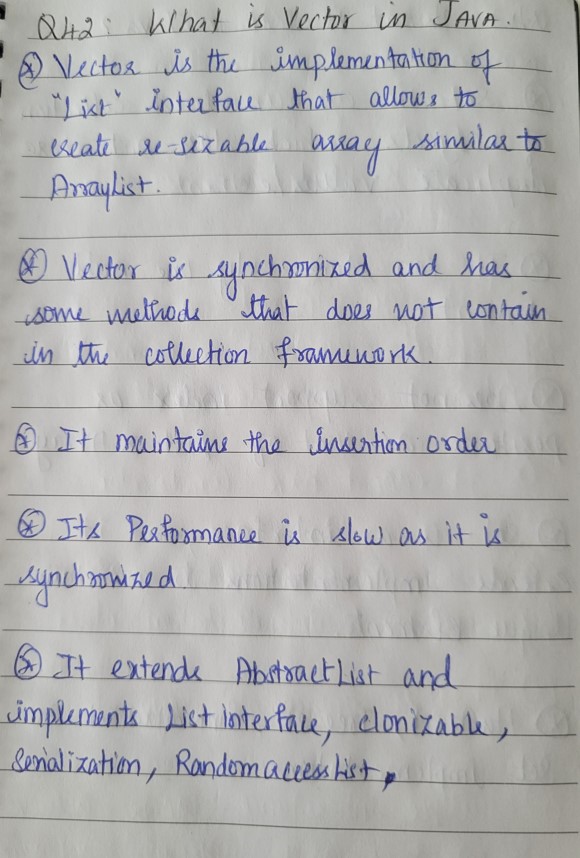 Q42: What is Vector in JAVA.
⊛ Vector is the implementation of
"List" interface that allows to
create re-sizable array similar to
ArrayList.
⊛ Vector is synchronized and has
some methods that does not contain
in the collection framework.
⊛ It maintains the insertion order
⊛ Its Performance is slow as it is
synchronized.
⊛ It extends AbstractList and
implements List interface, clonizable,
Serialization, Randomaccesslist,